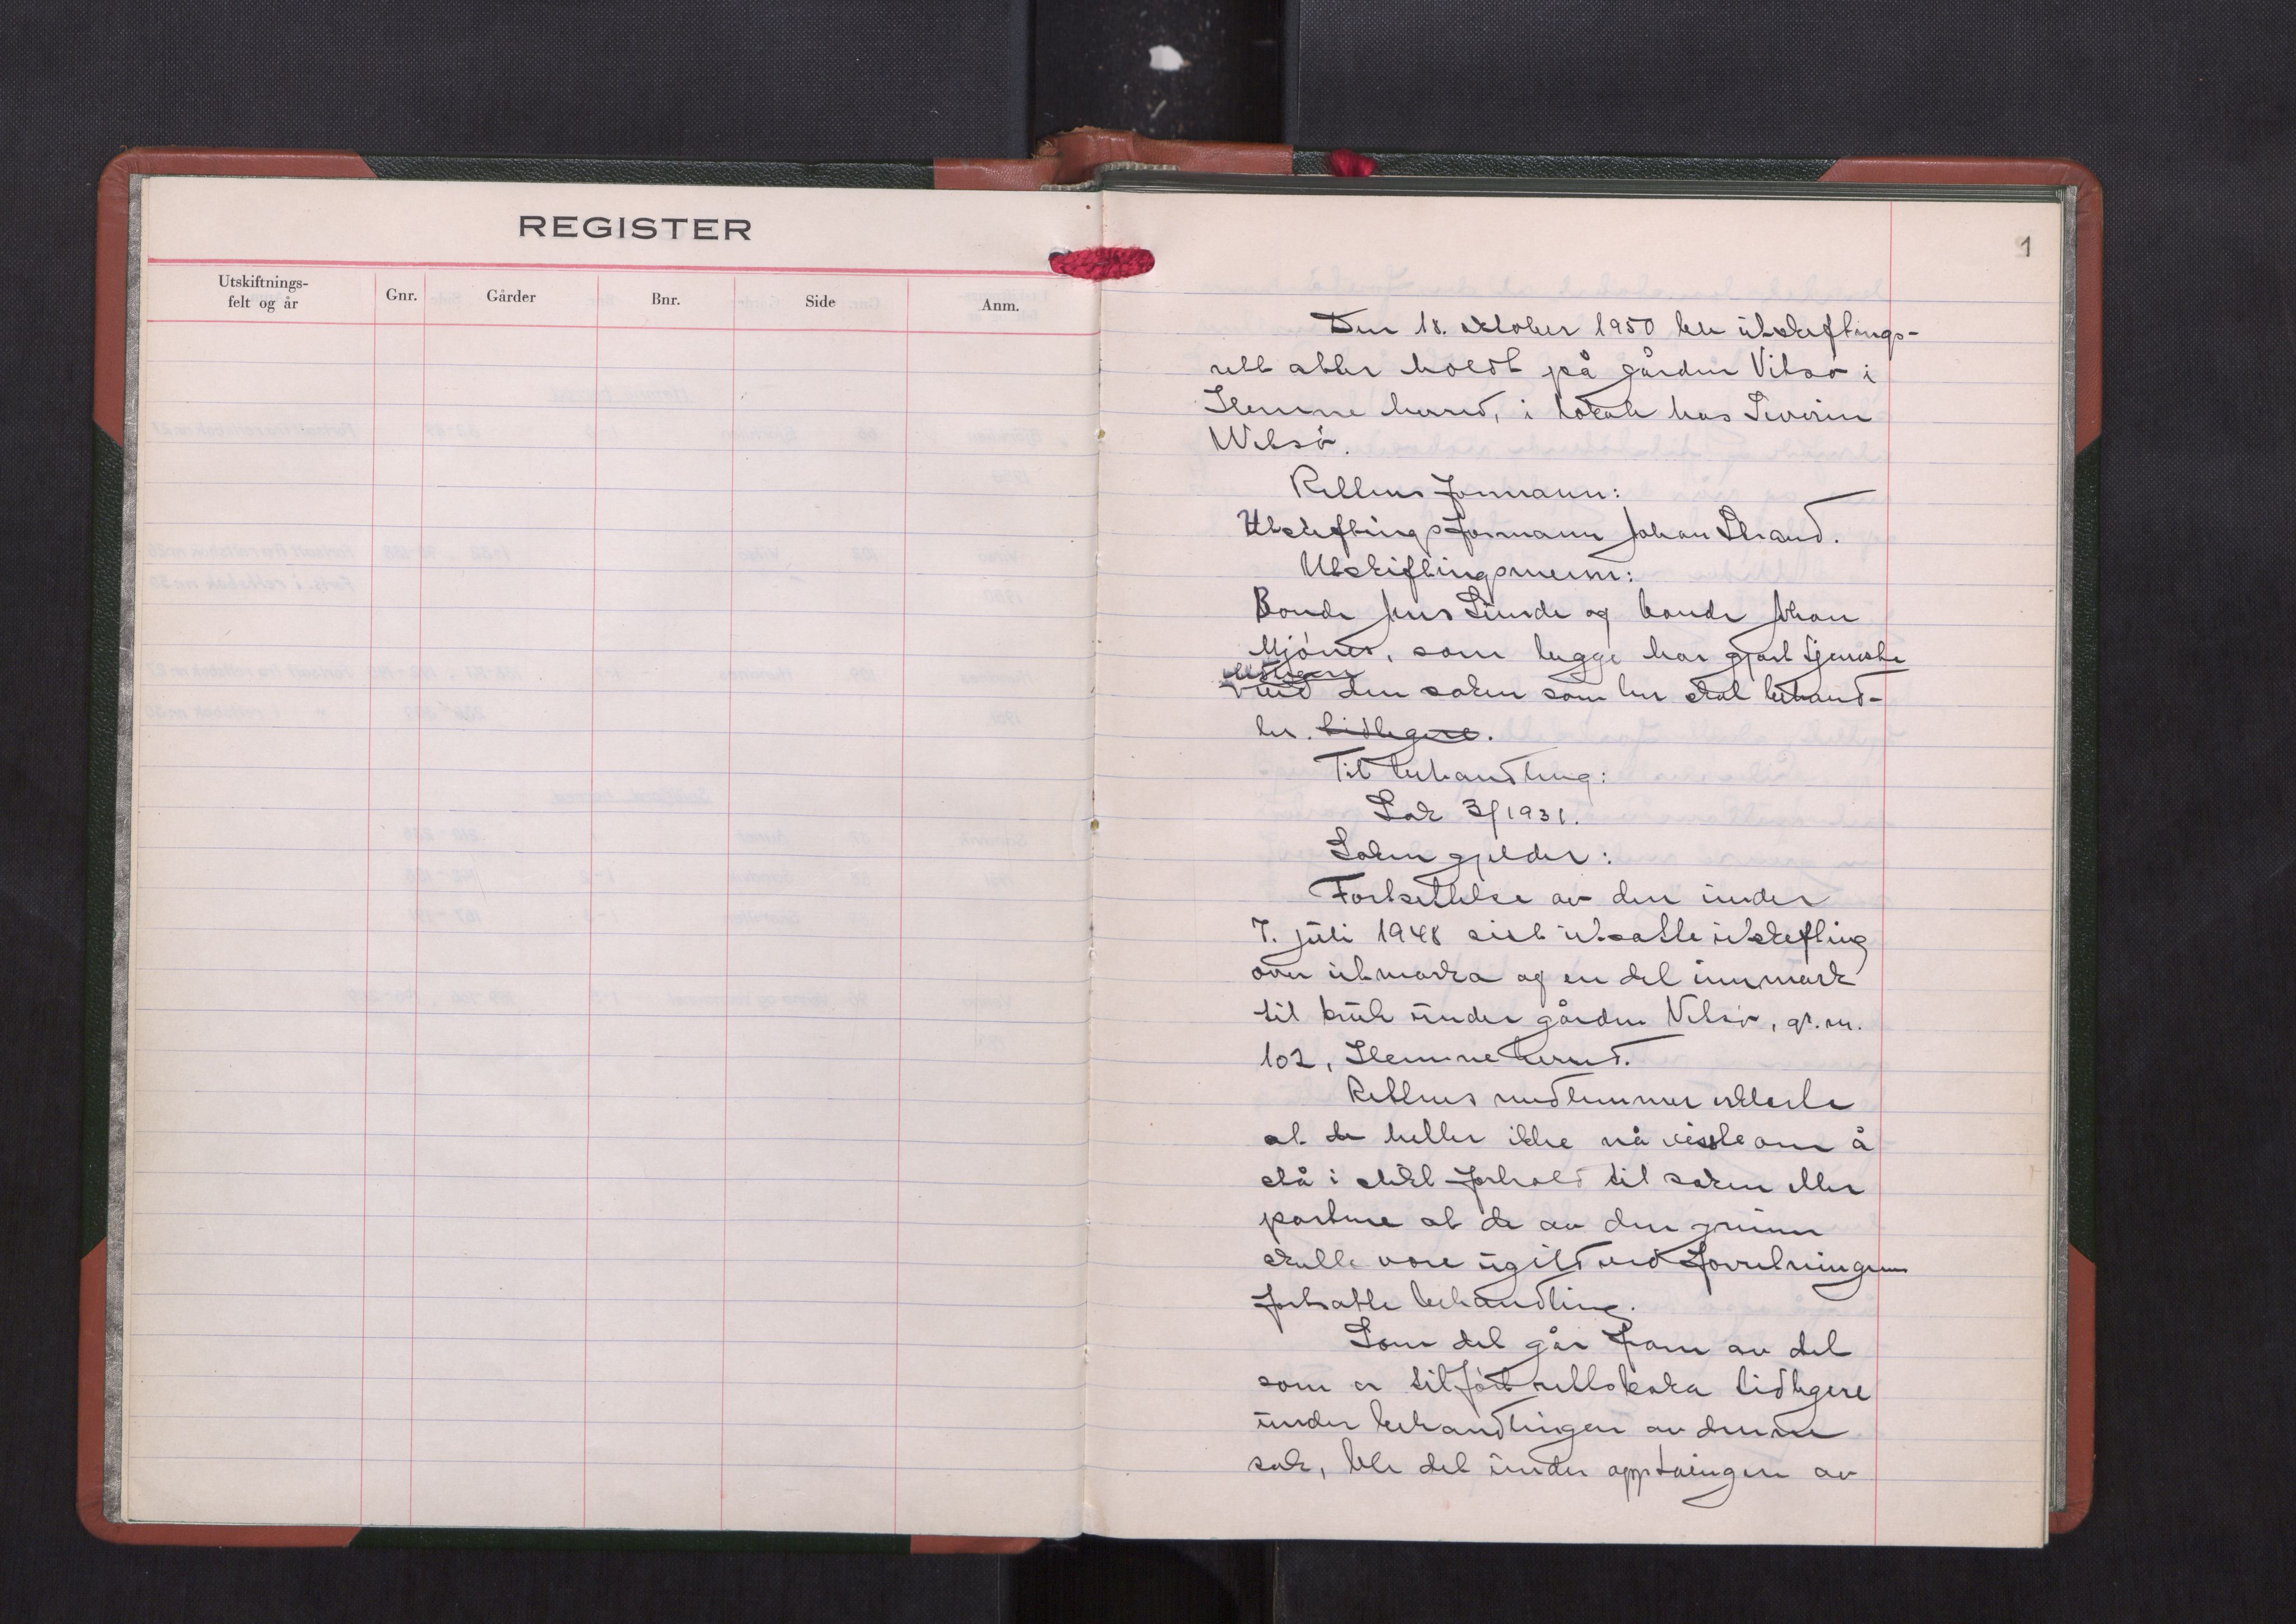 REGISTER
Utskiftnings-
felt og år
Gnr.
Gårder
Bnr.
Side
Anm.
1
Den 18. oktober 1950 ble utskiftings-
rett atter holdt på gården Vitsø i
Hemne herred, i lokale hos Severin
Witsø.
Rettens formann:
Utskiftingsformann Johan Strand.
Utskiftingsmenn:
Bonde Jens Sunde og bonde Johan
Mjønes, som begge har gjort tjeneste
tidligere
ved den saken som her skal behand-
les. tidligere.
Til behandling:
Sak 3/1931.
Saken gjelder:
Fortsettelse av den under
7. juli 1948 sist utsatte utskifting
over utmarka og en del innmark
til bruk under gården Vitsø, gr. nr.
102, Hemne herred.
Rettens medlemmer erklærte
at de heller ikke nå visste om å
stå i slikt forhold til saken eller
partene at de av den grunn
skulle være ugild ved forretningens
fortsatte behandling.
Som det går fram av det
som er tilført rettsboka tidligere
under behandlingen av denne
sak, ble det under opptaingen av